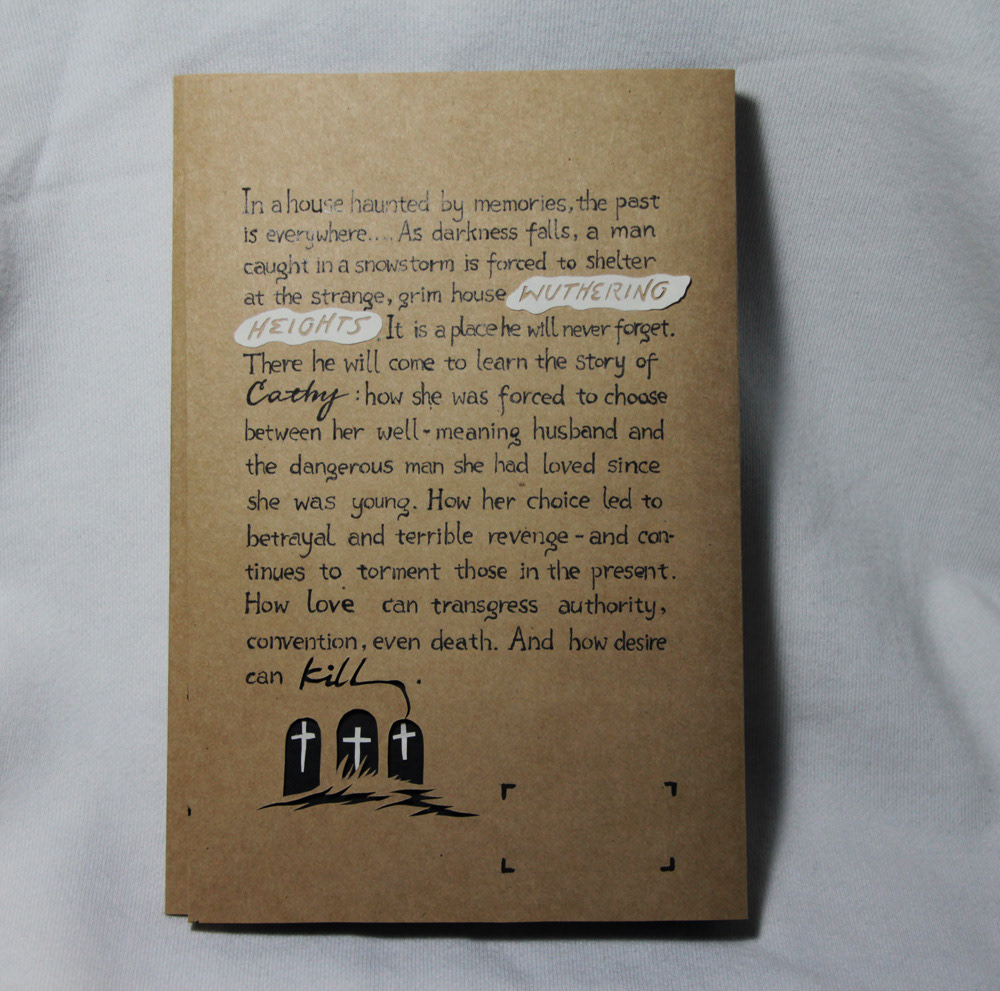 In a house haunted by memories, the past
is everywhere.... As darkness falls, a man
caught in a snowstorm is forced to shelter
at the strange, grim house WUTHERING
HEIGHTS. It is a place he will never forget.
There he will come to learn the story of
Cathy: how she was forced to choose
between her well-meaning husband and
the dangerous man she had loved since
she was young. How her choice led to
betrayal and terrible revenge - and con-
tinues to torment those in the present.
How love can transgress authority,
convention, even death. And how desire
can kill.